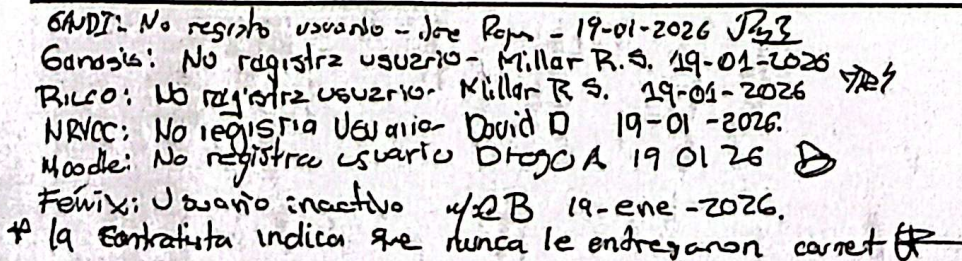 GANDI: No registro usuario - Jose - 19-01-2026
Ganasis: No registra usuario - Millar R.S. 19-01-2026
RILCO: No registra usuario - Millar R S. 19-01-2026
NRVCC: No registra Usuario David D 19-01-2026.
Moodle: No registra usuario Diego A 19 01 26
Fénix: Usuario inactivo B 19-ene-2026.
* la contratista indica que nunca le entregaron carnet